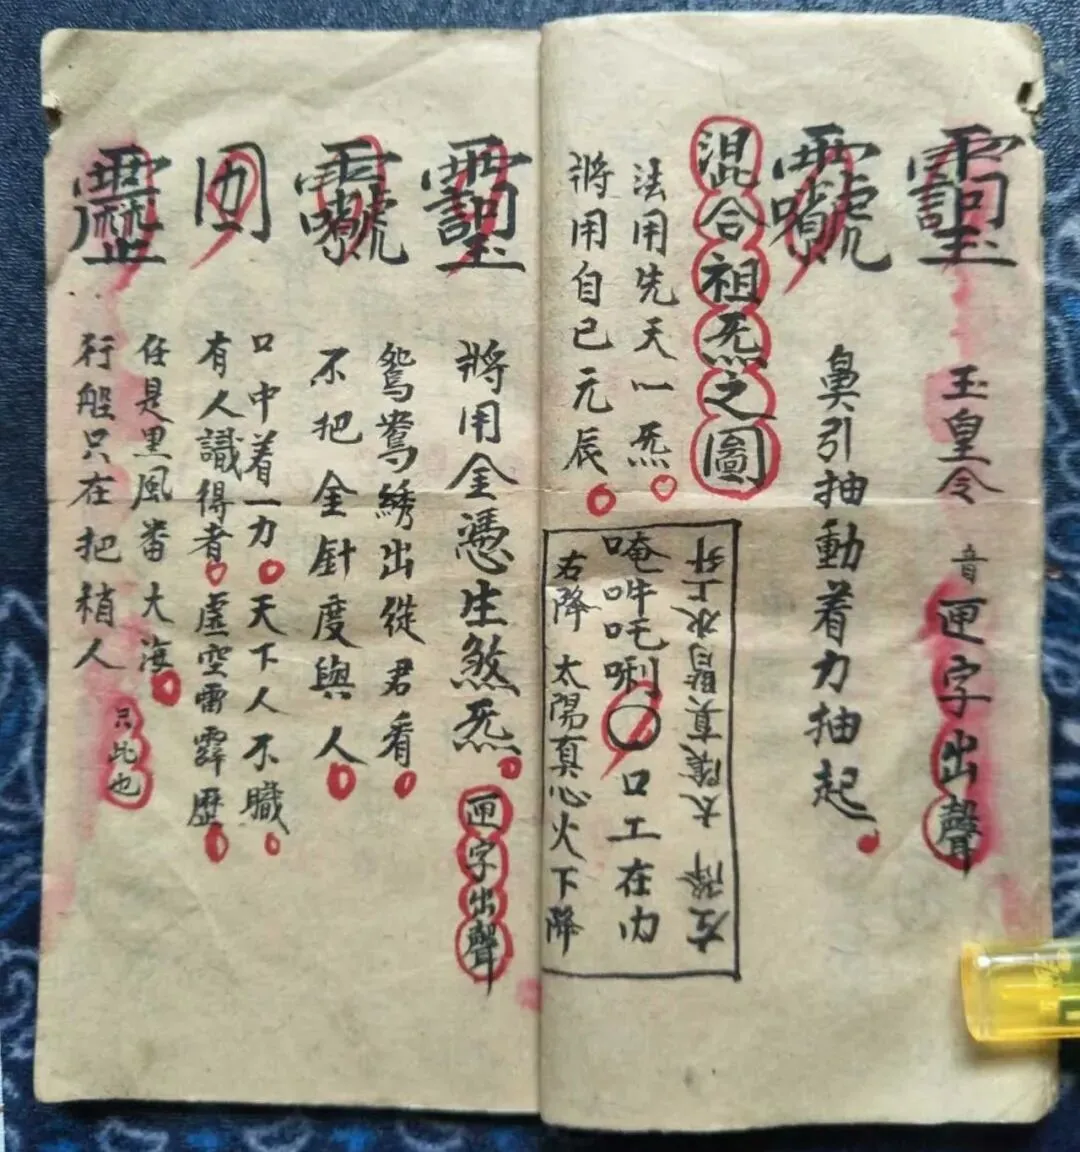 玉皇令 音匣字出聲
鼻引抽動着力抽起
混合祖炁之圖
法用先天一炁
將用自己元辰
左降 太陰真腎水上升
唵吽吒唎 口工在内
右降 太陽真心火下降
將用金憑生煞炁 匣字出聲
鴛鴦綉出從君看
不把金針度與人
囙
口中着一力天下人不職
有人識得者虛空雷霹歷
任是黑風畨大海
行船只在把稍人
只此也